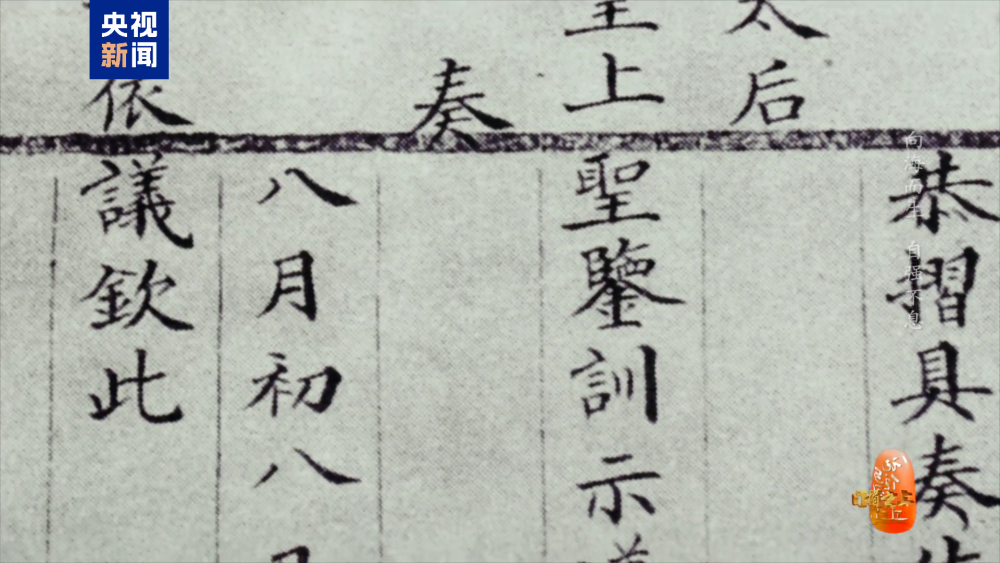 央视
新闻
恭摺具奏
太后
皇上聖鑒訓示
奏
八月初八
依議欽此
向海而生 自强不息